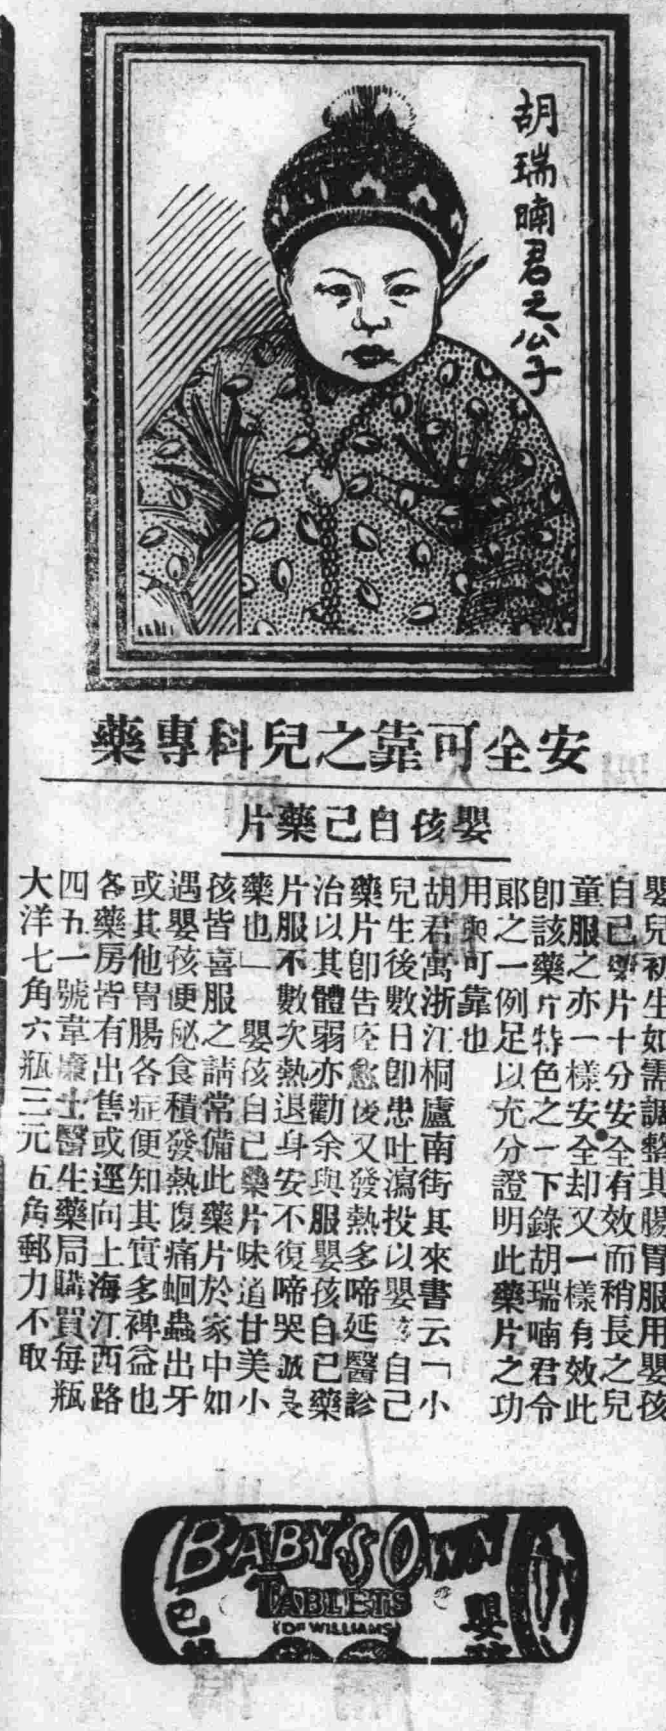 胡瑞喃君之公子
安全可靠之兒科專藥
嬰孩自己藥片
嬰兒初生如需調整其腸胃服用嬰孩
自己藥片十分安全有效而稍長之兒
童服之亦一樣安全却又一樣有效此
卽該藥片特色之一下錄胡瑞喃君令
郎之一例足以充分證明此藥片之功
用與可靠也
胡君寓浙江桐廬南街其來書云「小
兒生後數日卽患吐瀉投以嬰孩自己
藥片卽告痊愈後又發熱多啼延醫診
治以其體弱亦勸余與服嬰孩自己藥
片服不數次熱退身安不復啼哭誠良
藥也」嬰孩自己藥片味道甘美小
孩皆喜服之請常備此藥片於家中如
遇嬰孩便秘食積發熱腹痛蛔蟲出牙
或其他胃腸各症便知其實多裨益也
各藥房皆有出售或逕向上海江西路
四五一號韋廉士醫生藥局購買每瓶
大洋七角六瓶三元五角郵力不取
BABY'S OWN
TABLETS
(DR WILLIAMS)
嬰
己